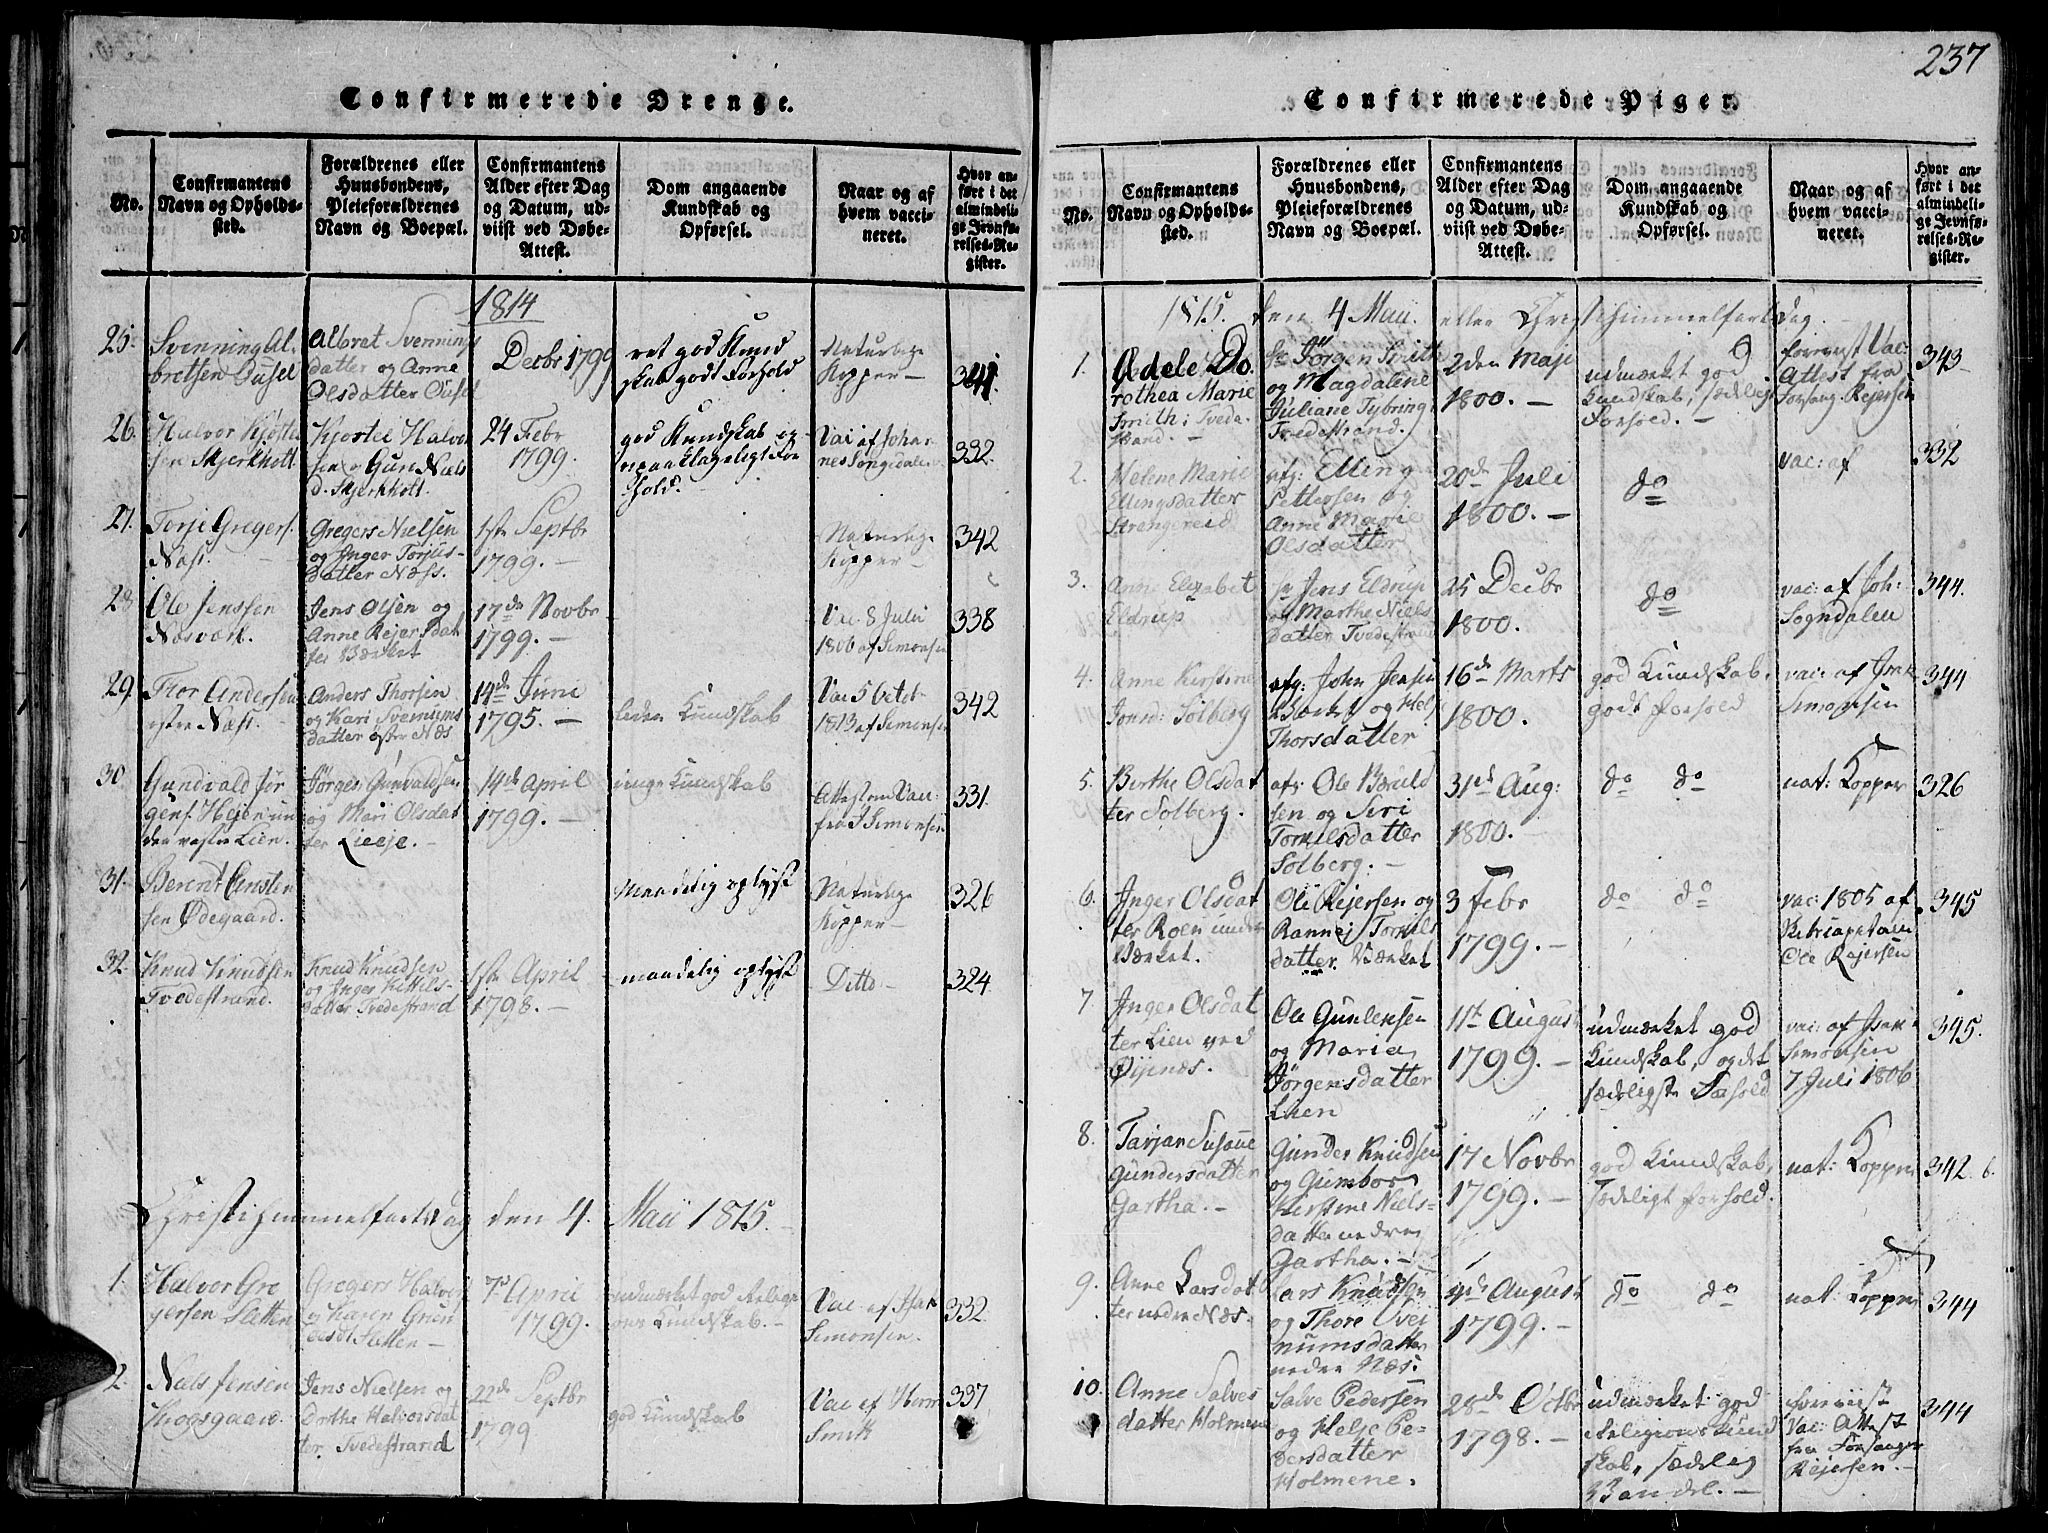 237
Confirmerede Drenge.
No.
Confirmantens
Navn og Opholds-
sted.
Forældrenes eller
Huusbondens,
Pleieforældrenes
Navn og Boepæl.
Confirmantens
Alder efter Dag
og Datum, ud-
viist ved Døbe-
Attest.
Dom angaaende
Kundskab og
Opførsel.
Naar og af
hvem vacci-
neret.
Hvor an-
ført i det
almindeli-
ge Jevnfø-
relses-Re-
gister.
1814
25.
Svenning Al-
bretsen Dusel
Albret Svennings
datter og Anne
Olsdatter Dusel
Decbr 1799
ret god Kund
skab godt Forhold
Naturlege
Kopper —
341.
26.
Halvor Kjøste
sen Skjerkholt
Kjostel Halvor
sen og Gun Niels
d. Skjerkholt.
24 Febr
1799.
god Kundskab og
upaaklageligt For
hold.
Vac af Johan
nes Songdalen
332.
27.
Torje Gregers.
Næst.
Gregers Nielsen
og Inger Torjus-
datter Næss.
1ste Septbr
1799. —
Naturlege
Kopper —
342
28
Ole Jenssen
Næsværk.
Jens Olsen og
Anne Rejersdat
ter Værket
17de Novbr
1799. —
Vac 8 Juli
1806 af Simonsen
338
29
Thor Andersen
østre Næst. —
Anders Thorsen
og Kari Svenums
datter østre Næs
14de Juni
1795. —
liden Kundskab
Vac 5 Octob
1813 af Simonsen
342
30
Gundvald Jør
gens. Hejen un
der vestre Lien.
Jørgen Gunvaldsen
og Mari Olsdat
ter Lieeje. —
14de April
1799. —
inge Kundskab
Attest om Vac:
fra I Simonsen
331.
31.
Berent Ansten
sen Ødegaard.
Maadelig oplyst
Naturlege
Kopper —
326
32.
Knud Knudsen
Tvedestrand.
Knud Knudsen
og Inger Kittils-
datter Tvedestrand
1ste April
1798. —
maadelig oplyst
Ditto —
324
Christi Himmelfarts Dag den 4. Maii 1815. —
1.
Halver Gre
gersen Sletten
Gregers Halvor
og Karen Gun
desdt Sletten —
7de April
1799. —
udmærket god Relegi
ons Kundskab. —
Vac af Isak
Simonsen.
332
2.
Niels Jensen
Krogsgaard.
Jens Nielsen og
Dorthe Halvorsdat
ter Tvedestrand
22de Septbr
1799
god Kundskab
Vac af Herr
Smith
337
Confirmerede Piger.
No.
Confirmantens
Navn og Opholds-
sted.
Forældrenes eller
Huusbondens,
Pleieforældrenes
Navn og Boepæl.
Confirmantens
Alder efter Dag
og Datum, ud-
viist ved Døbe-
Attest.
Dom angaaende
Kundskab og
Opførsel.
Naar og af
hvem vacci-
neret.
Hvor an-
ført i det
almindeli-
ge Jevnfø-
relses-Re-
gister.
1815. den 4 Maii. eller Christi himmelfarts Dag.
1.
Adele Do.
rothea Marie
Smith i Tvede
strand. —
Hr Jørgen Smith
og Magdalene
Juliane Tybring
Tvedestrand.
2den Maji
1800. —
udmærket god
Kundskab, sædelig
Forhold. —
foreviist Vac:
Attest fra
Forsang. Rejersen
343
2.
Helene Marie
Ellingsdatter
Strengereid
afg: Elling
Pettersen og
Anne Marie
Olsdatter
20de Juli
1800. —
do
vac: af
332
3.
Anne Elisabet
Eldrup
Hr Jens Eldrup
og Marthe Niels
datter Tvedestrand
25 Decbr
1800.
do
vac: af Joh:
Sogndalen
344.
4.
Anne Kirstine
Jonsd: Solberg
afg: John Jensen
Værket og Helj
Thorsdatter
16de Marts
1800.
god Kundskab,
godt forhold
vac: af Isak
Simonsen
344
5.
Berthe Olsdat
ter Solberg.
afg: Ole Baruld
sen og Siri
Torkilsdatter
Solberg. —
31de Aug:
1800. —
do do
nat: Kopper
326
6.
Inger Olsdat
ter Roen under
Værket.
Ole Rejersen og
Rannej Torkils
datter. Værket
3 Febr
1799. —
do do
vac: 1805 af
Ole Rejersen
345
7
Inger Olsdat
ter Lien ved
Øijenæs.
Ole Gunlensen
og Maria
Jörgensdatter
Lien
11te August
1799. —
udmærket god
Kundskab, og det
sædeligste Forhold
vac: af Isak
Simonsen
7 Juli 1806
345.
8.
Tarjer Susane
Gundersdatter
Gartha. —
Gunder Knudsen
og Gumbor
Kirstine Niels-
datter nedre
Gartha. —
17 Novbr
1799. —
god Kundskab,
sædeligt forhold.
nat: Kopper
342 6.
9.
Anne Larsdat
ter nedre Næs.
Lars Knudsen
og Thore Svej
numsdatter
nedre Næs.
4de August
1799. —
do do
nat: Kopper
344
10.
Anne Salves
datter Holmene
Salve Pedersen
og Helje Pe-
dersdatter
Holmene.
28de Octbr
1798. —
udmærket god
Religions Kund
skab, sædelig
Vandel. —
foreviist
Vac: Attest
fra Forsanger
Rejersen. —
344